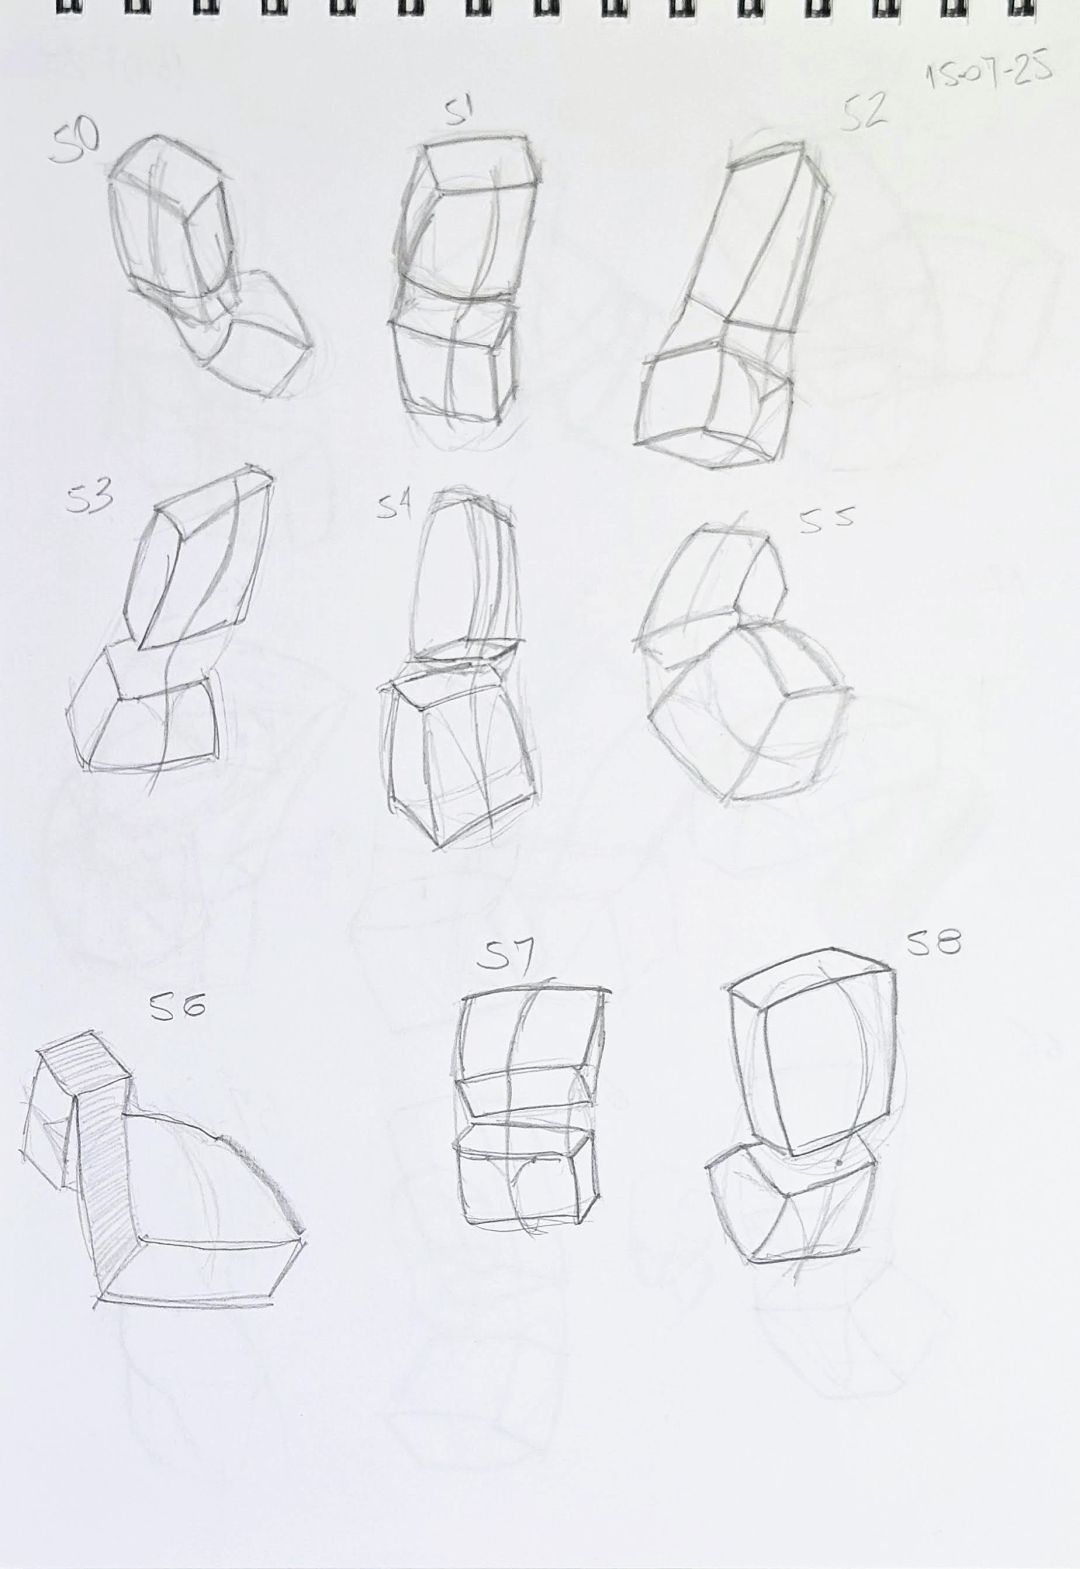 15-07-25
50
51
52
53
54
55
56
57
58